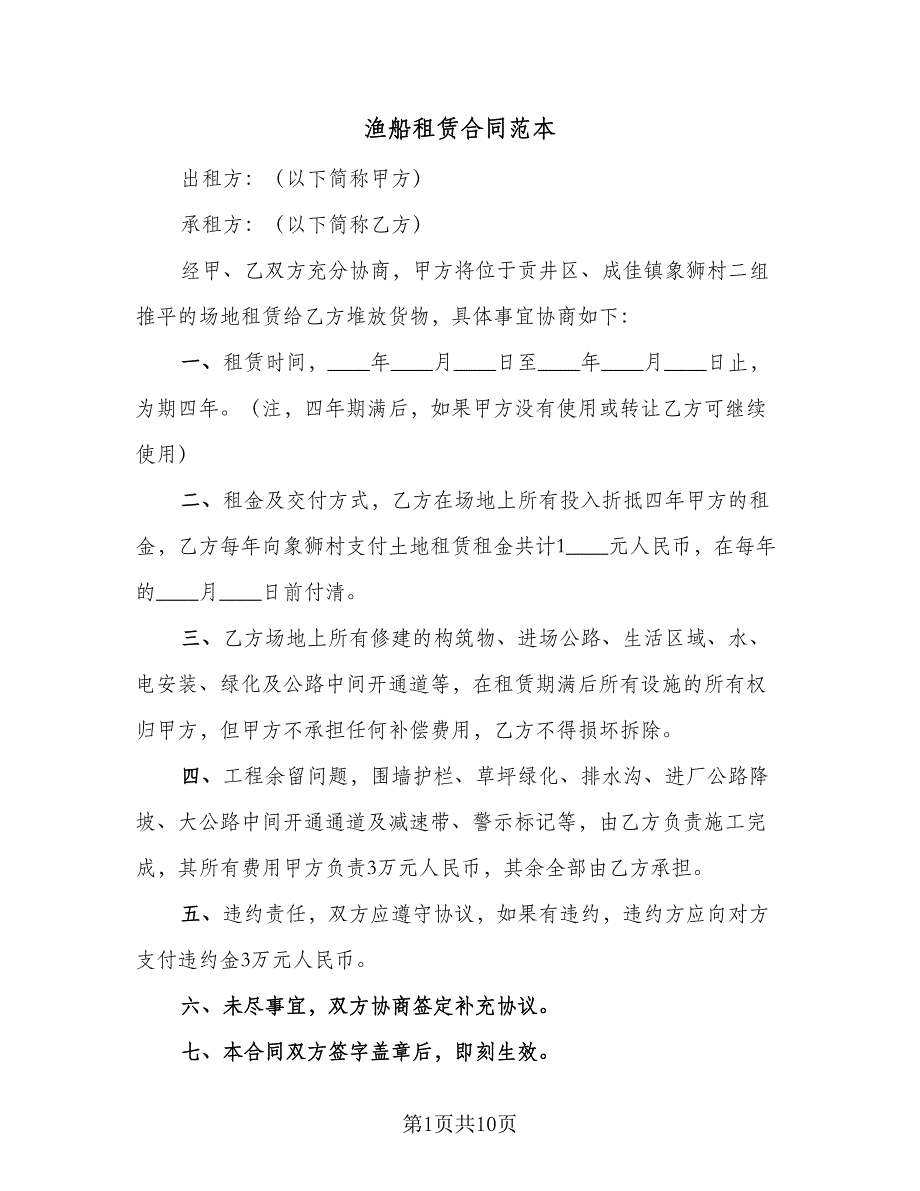 渔船租赁合同范本
出租方：（以下简称甲方）
承租方：（以下简称乙方）
经甲、乙双方充分协商，甲方将位于贡井区、成佳镇象狮村二组
推平的场地租赁给乙方堆放货物，具体事宜协商如下：
一、租赁时间，____年____月____日至____年____月____日止，
为期四年。（注，四年期满后，如果甲方没有使用或转让乙方可继续
使用）
二、租金及交付方式，乙方在场地上所有投入折抵四年甲方的租
金，乙方每年向象狮村支付土地租赁租金共计1____元人民币，在每年
的____月____日前付清。
三、乙方场地上所有修建的构筑物、进场公路、生活区域、水、
电安装、绿化及公路中间开通道等，在租赁期满后所有设施的所有权
归甲方，但甲方不承担任何补偿费用，乙方不得损坏拆除。
四、工程余留问题，围墙护栏、草坪绿化、排水沟、进厂公路降
坡、大公路中间开通通道及减速带、警示标记等，由乙方负责施工完
成，其所有费用甲方负责3万元人民币，其余全部由乙方承担。
五、违约责任，双方应遵守协议，如果有违约，违约方应向对方
支付违约金3万元人民币。
六、未尽事宜，双方协商签定补充协议。
七、本合同双方签字盖章后，即刻生效。
第1页共10页